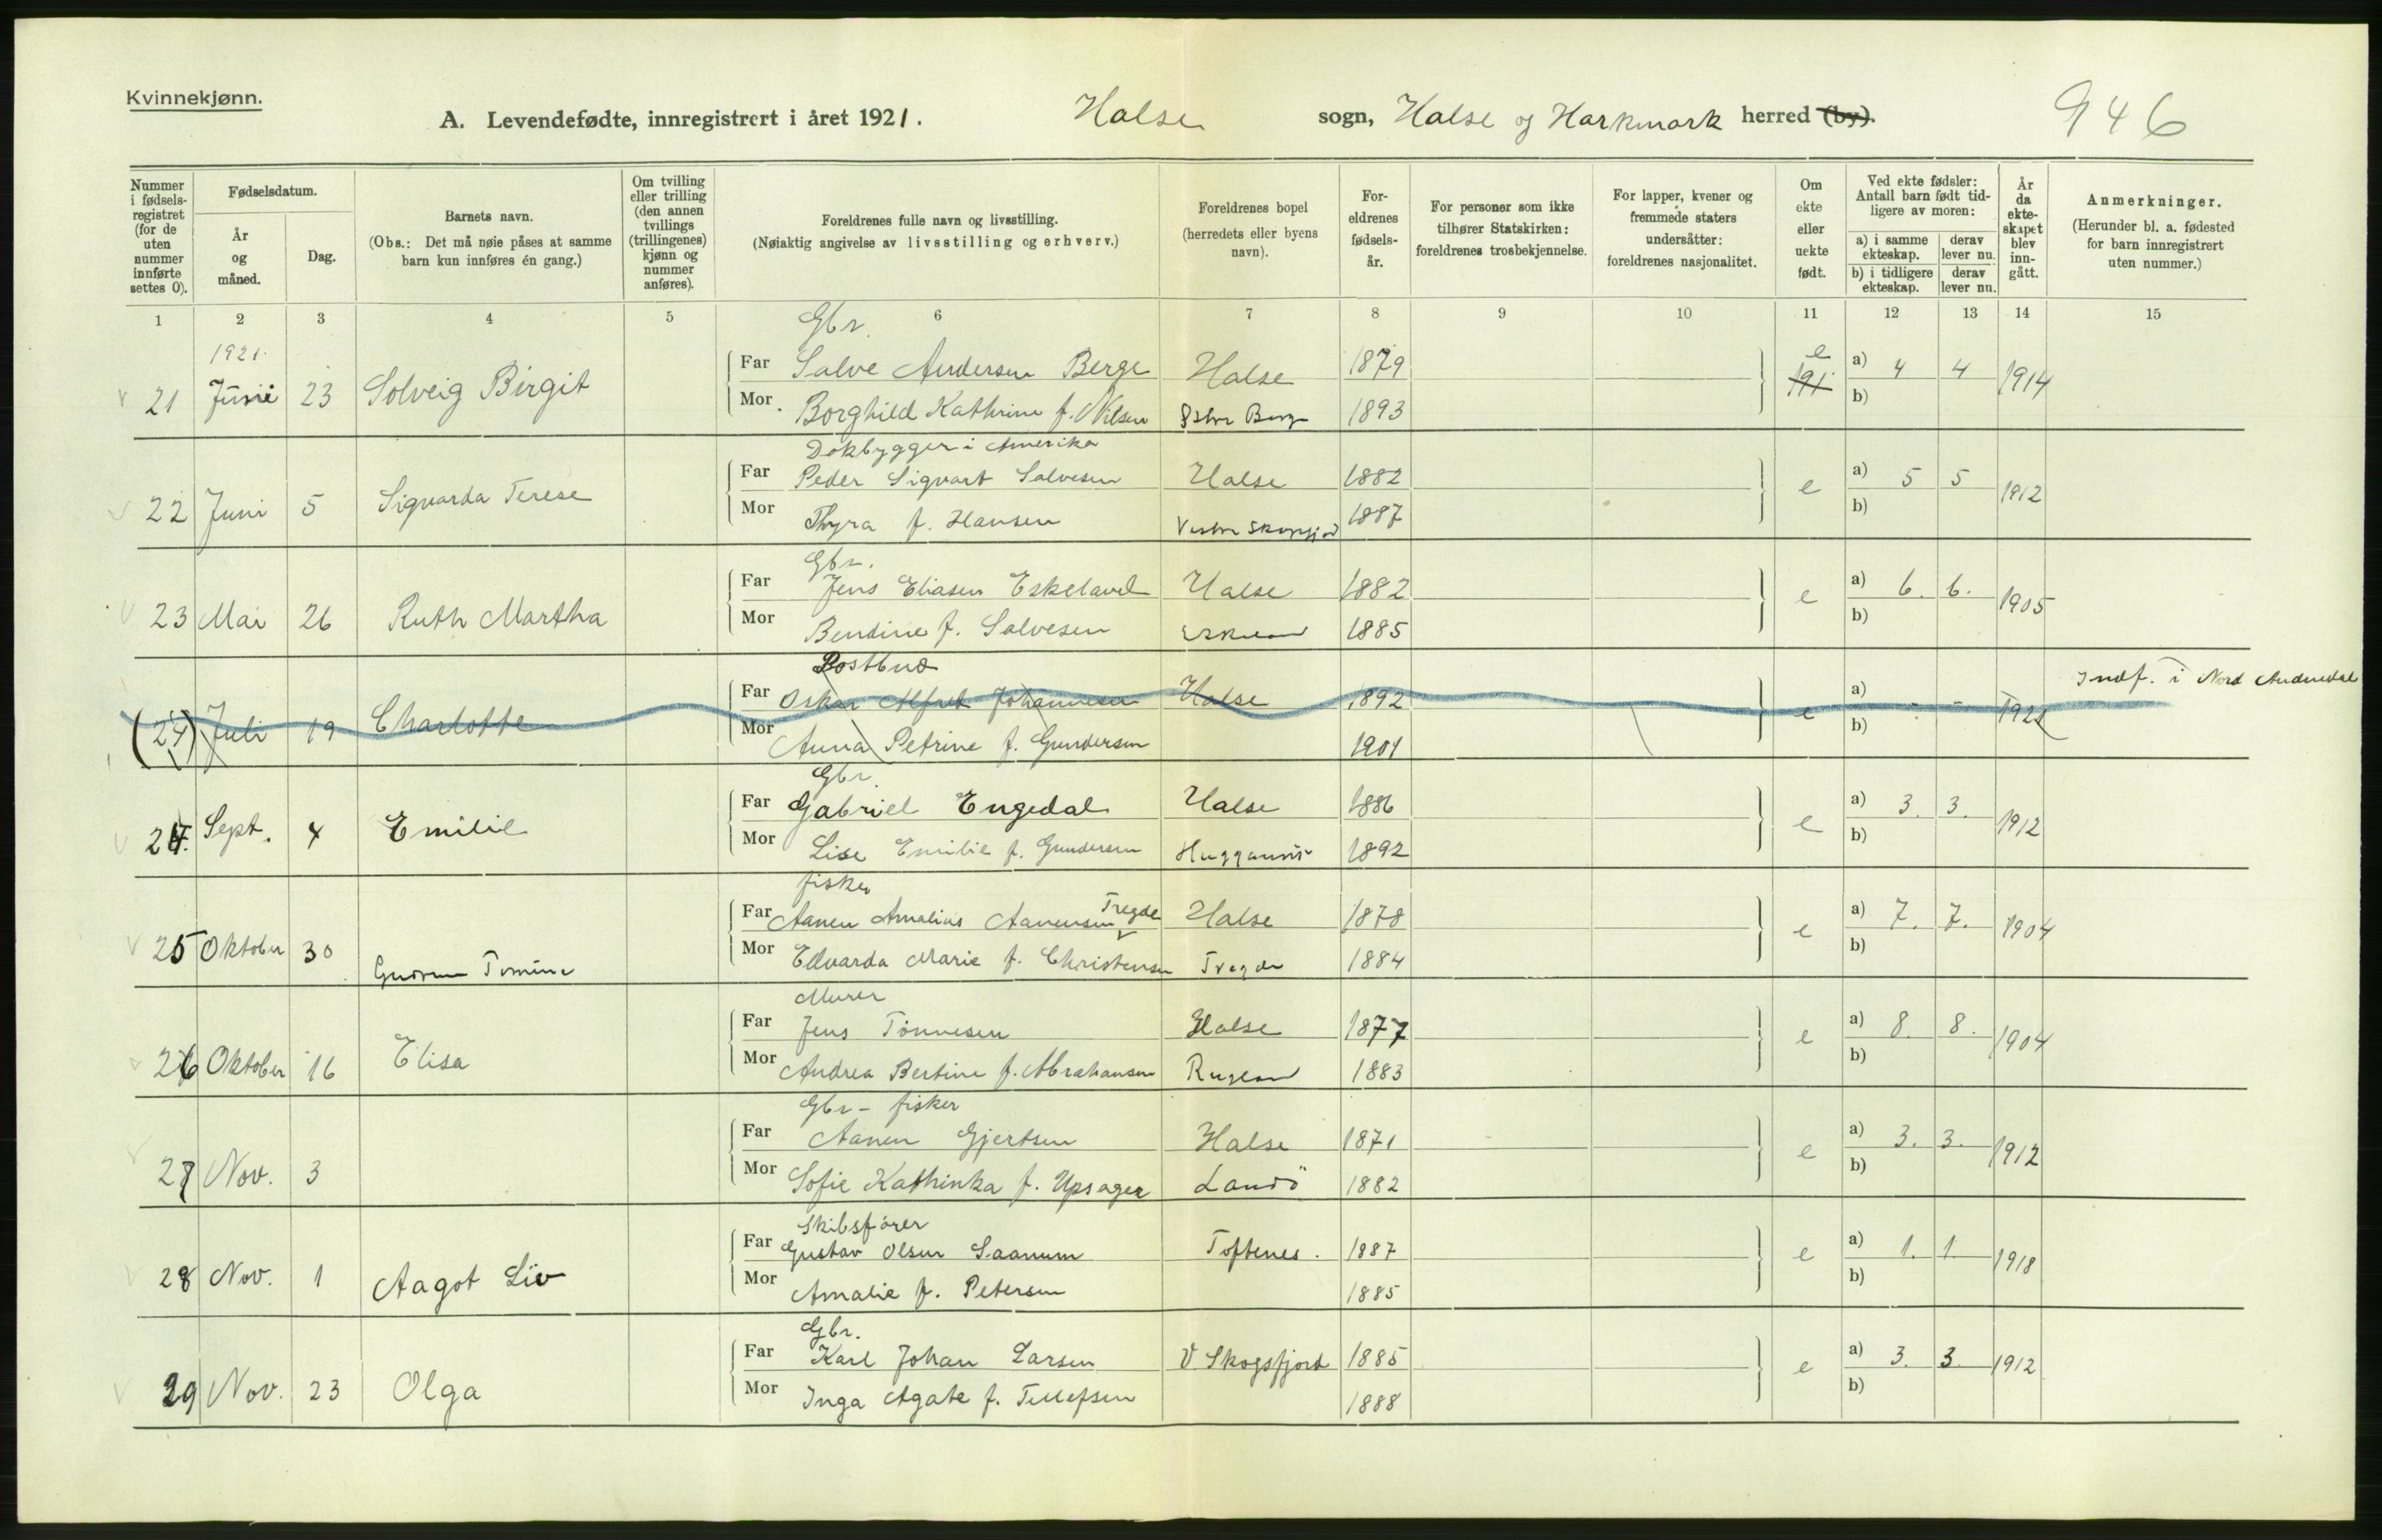 Kvinnekjønn.
A. Levendefødte, innregistrert i året 1921. Halse sogn, Halse og Harkmark herred (by).
946
Nummer i fødselsregistret (for de uten nummer innførte settes 0).
Fødselsdatum.
År og måned.
Dag.
Barnets navn.
(Obs.: Det må nøie påses at samme barn kun innføres én gang.)
Om tvilling eller trilling (den annen tvillings (trillingenes) kjønn og nummer anføres).
Foreldrenes fulle navn og livsstilling.
(Nøiaktig angivelse av livsstilling og erhverv.)
Foreldrenes bopel (herredets eller byens navn).
Foreldrenes fødselsår.
For personer som ikke tilhører Statskirken: foreldrenes trosbekjennelse.
For lapper, kvener og fremmede staters undersåtter: foreldrenes nasjonalitet.
Om ekte eller uekte født.
Ved ekte fødsler: Antall barn født tidligere av moren:
a) i samme ekteskap. derav lever nu.
b) i tidligere ekteskap. derav lever nu.
År da ekteskapet blev inngått.
Anmerkninger.
(Herunder bl. a. fødested for barn innregistrert uten nummer.)
1 2 3 4 5 6 7 8 9 10 11 12 13 14 15
1921.
Gbr.
21 Juni 23 Solveig Birgit Far Salve Andersen Berge Halse 1879 e a) 4 4 1914
Mor Borghild Kathrine f. Nilsen 1893 b)
Dokbygger i Amerika
22 Juni 5 Sigvarda Terese Far Peder Sigvart Salvesen Halse 1882 e a) 5 5 1912
Mor Thyra f. Hansen 1887 b)
Gbr.
23 Mai 26 Ruth Martha Far Jens Eliasen Eskeland Halse 1882 e a) 6. 6. 1905
Mor Bendine f. Salvesen Eskeland 1885 b)
Postbud
(24) Juli 19 Charlotte Far Oskar Alfred Johannesen Halse 1892 e a) - - 1921 Indf. i Nord Audnedal
Mor Anna Petrine f. Gundersen 1901 b)
Gbr.
24. Sept. 4 Emilie Far Gabriel Engedal Halse 1886 e a) 3. 3. 1912
Mor Lise Emilie f. Gundersen 1892 b)
fisker
25 Oktober 30 Gudrun Tomine Far Aanen Amalius Aanensen Tregde Halse 1878 e a) 7. 7. 1904
Mor Edvarda Marie f. Christensen Tregde 1884 b)
Murer
26 Oktober 16 Elisa Far Jens Tønnesen Halse 1877 e a) 8. 8. 1904
Mor Andrea Bertine f. Abrahamsen 1883 b)
Gbr - fisker
27 Nov. 3 Far Aanen Gjertsen Halse 1871 e a) 3. 3. 1912
Mor Sofie Kathinka f. Upsager Landö 1882 b)
Skibsfører
28 Nov. 1 Aagot Liv Far Gustav Olsen Saanum Toftenes. 1887 e a) 1. 1. 1918
Mor Amalie f. Petersen 1885 b)
Gbr.
29 Nov. 23 Olga Far Karl Johan Larsen V Skogsfjord 1885 e a) 3. 3 1912
Mor Inga Agate f. Tellefsen 1888 b)